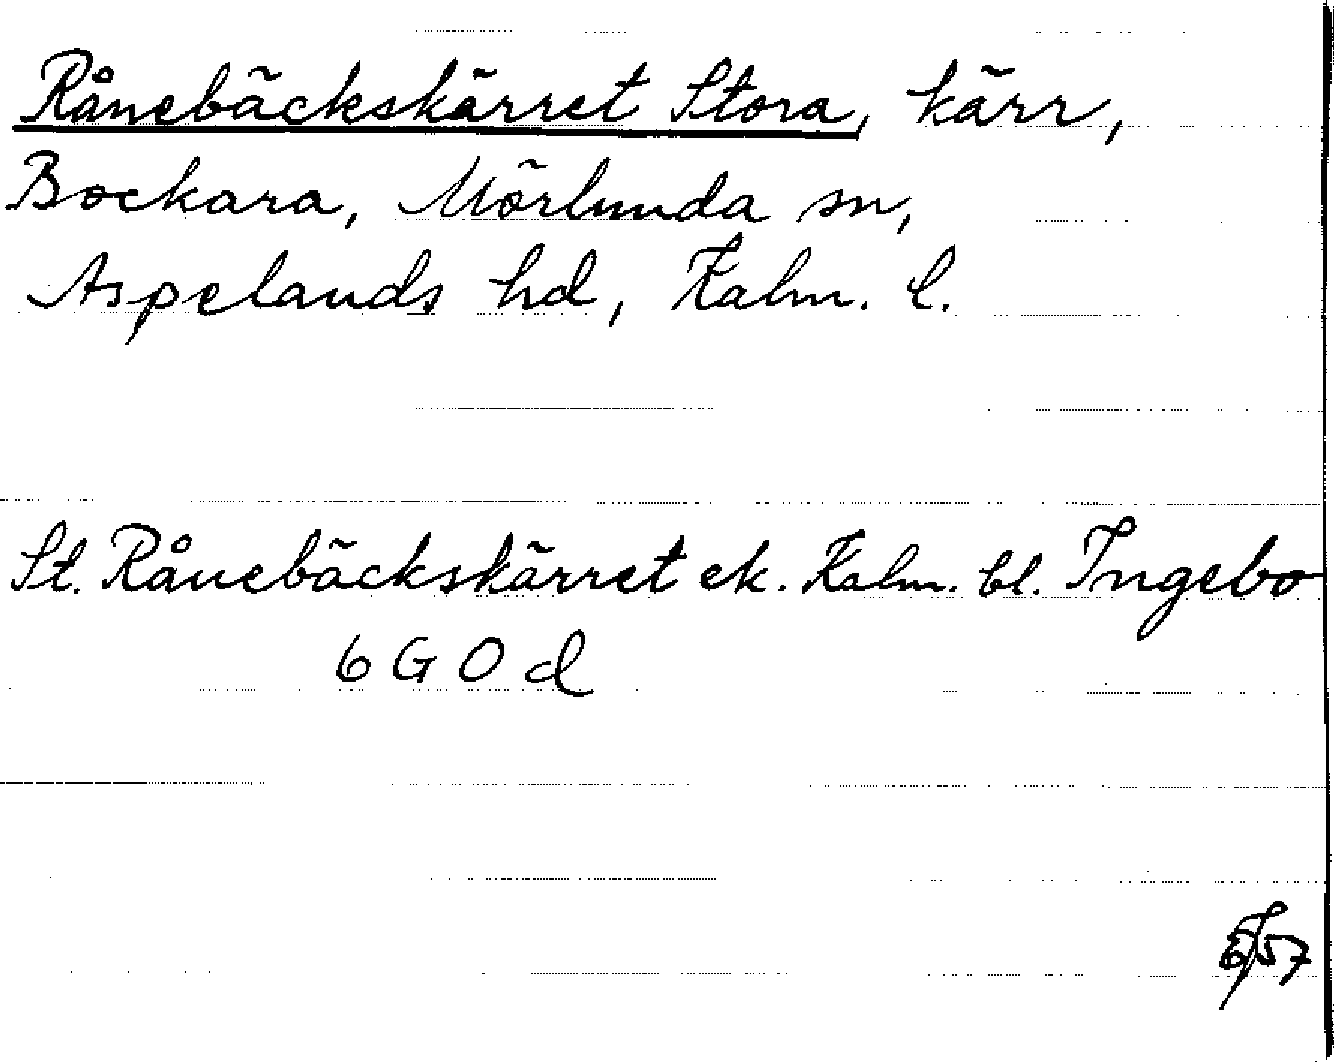 Rånebäckskärret Stora, kärr,
Bockara, Mörlunda sn,
Aspelands hd, Kalm. l.
St. Rånebäckskärret ek. Kalm. bl. Ingebo
6 G O d